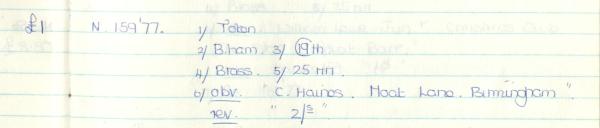 £1 N. 159 '77. 1/ Token
2/ B.ham. 3/ 19th
4/ Brass. 5/ 25 mm.
6/ obv. "C. Haines. Moat Lane. Birmingham".
rev. "2/s"